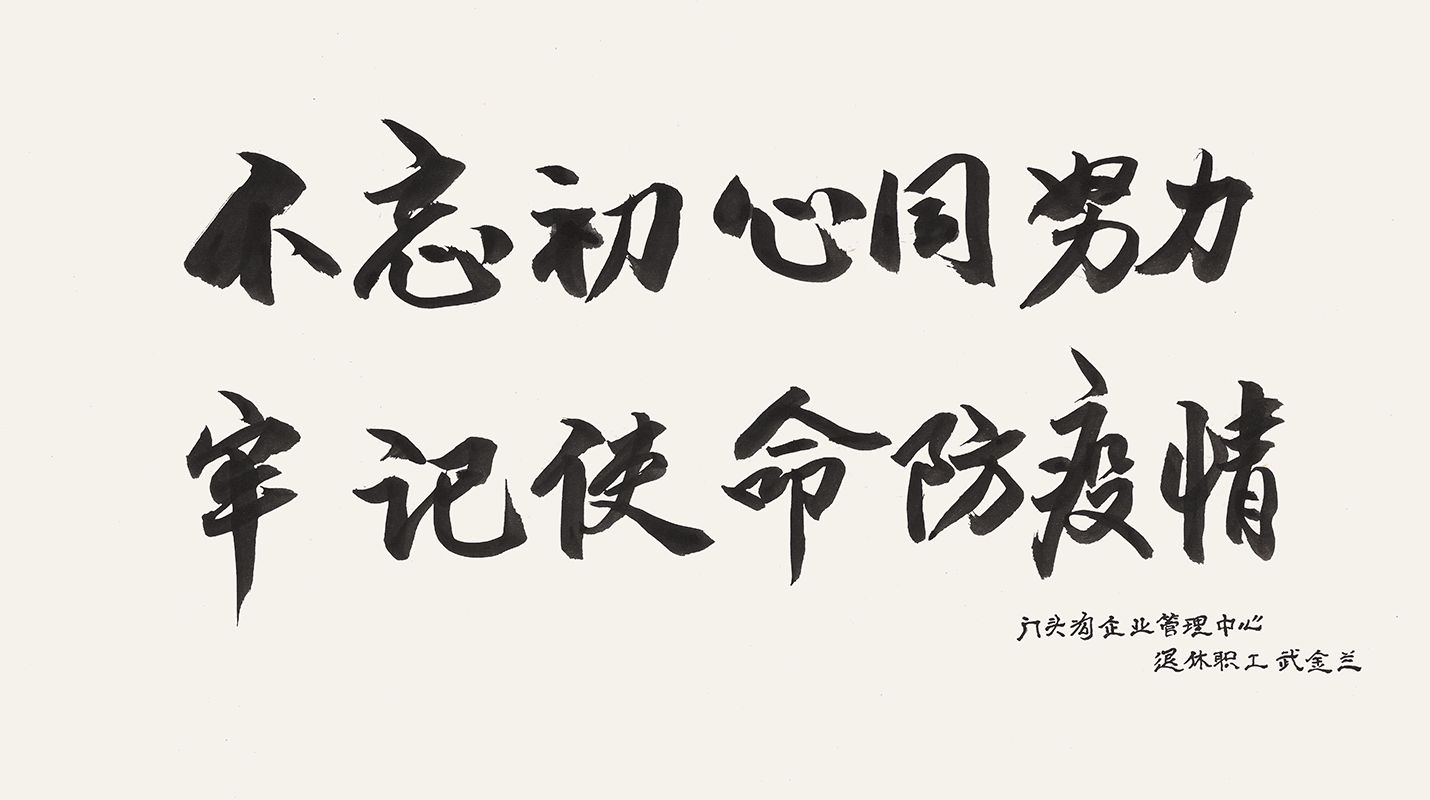 不忘初心同努力
牢记使命防疫情
门头沟企业管理中心
退休职工武金兰